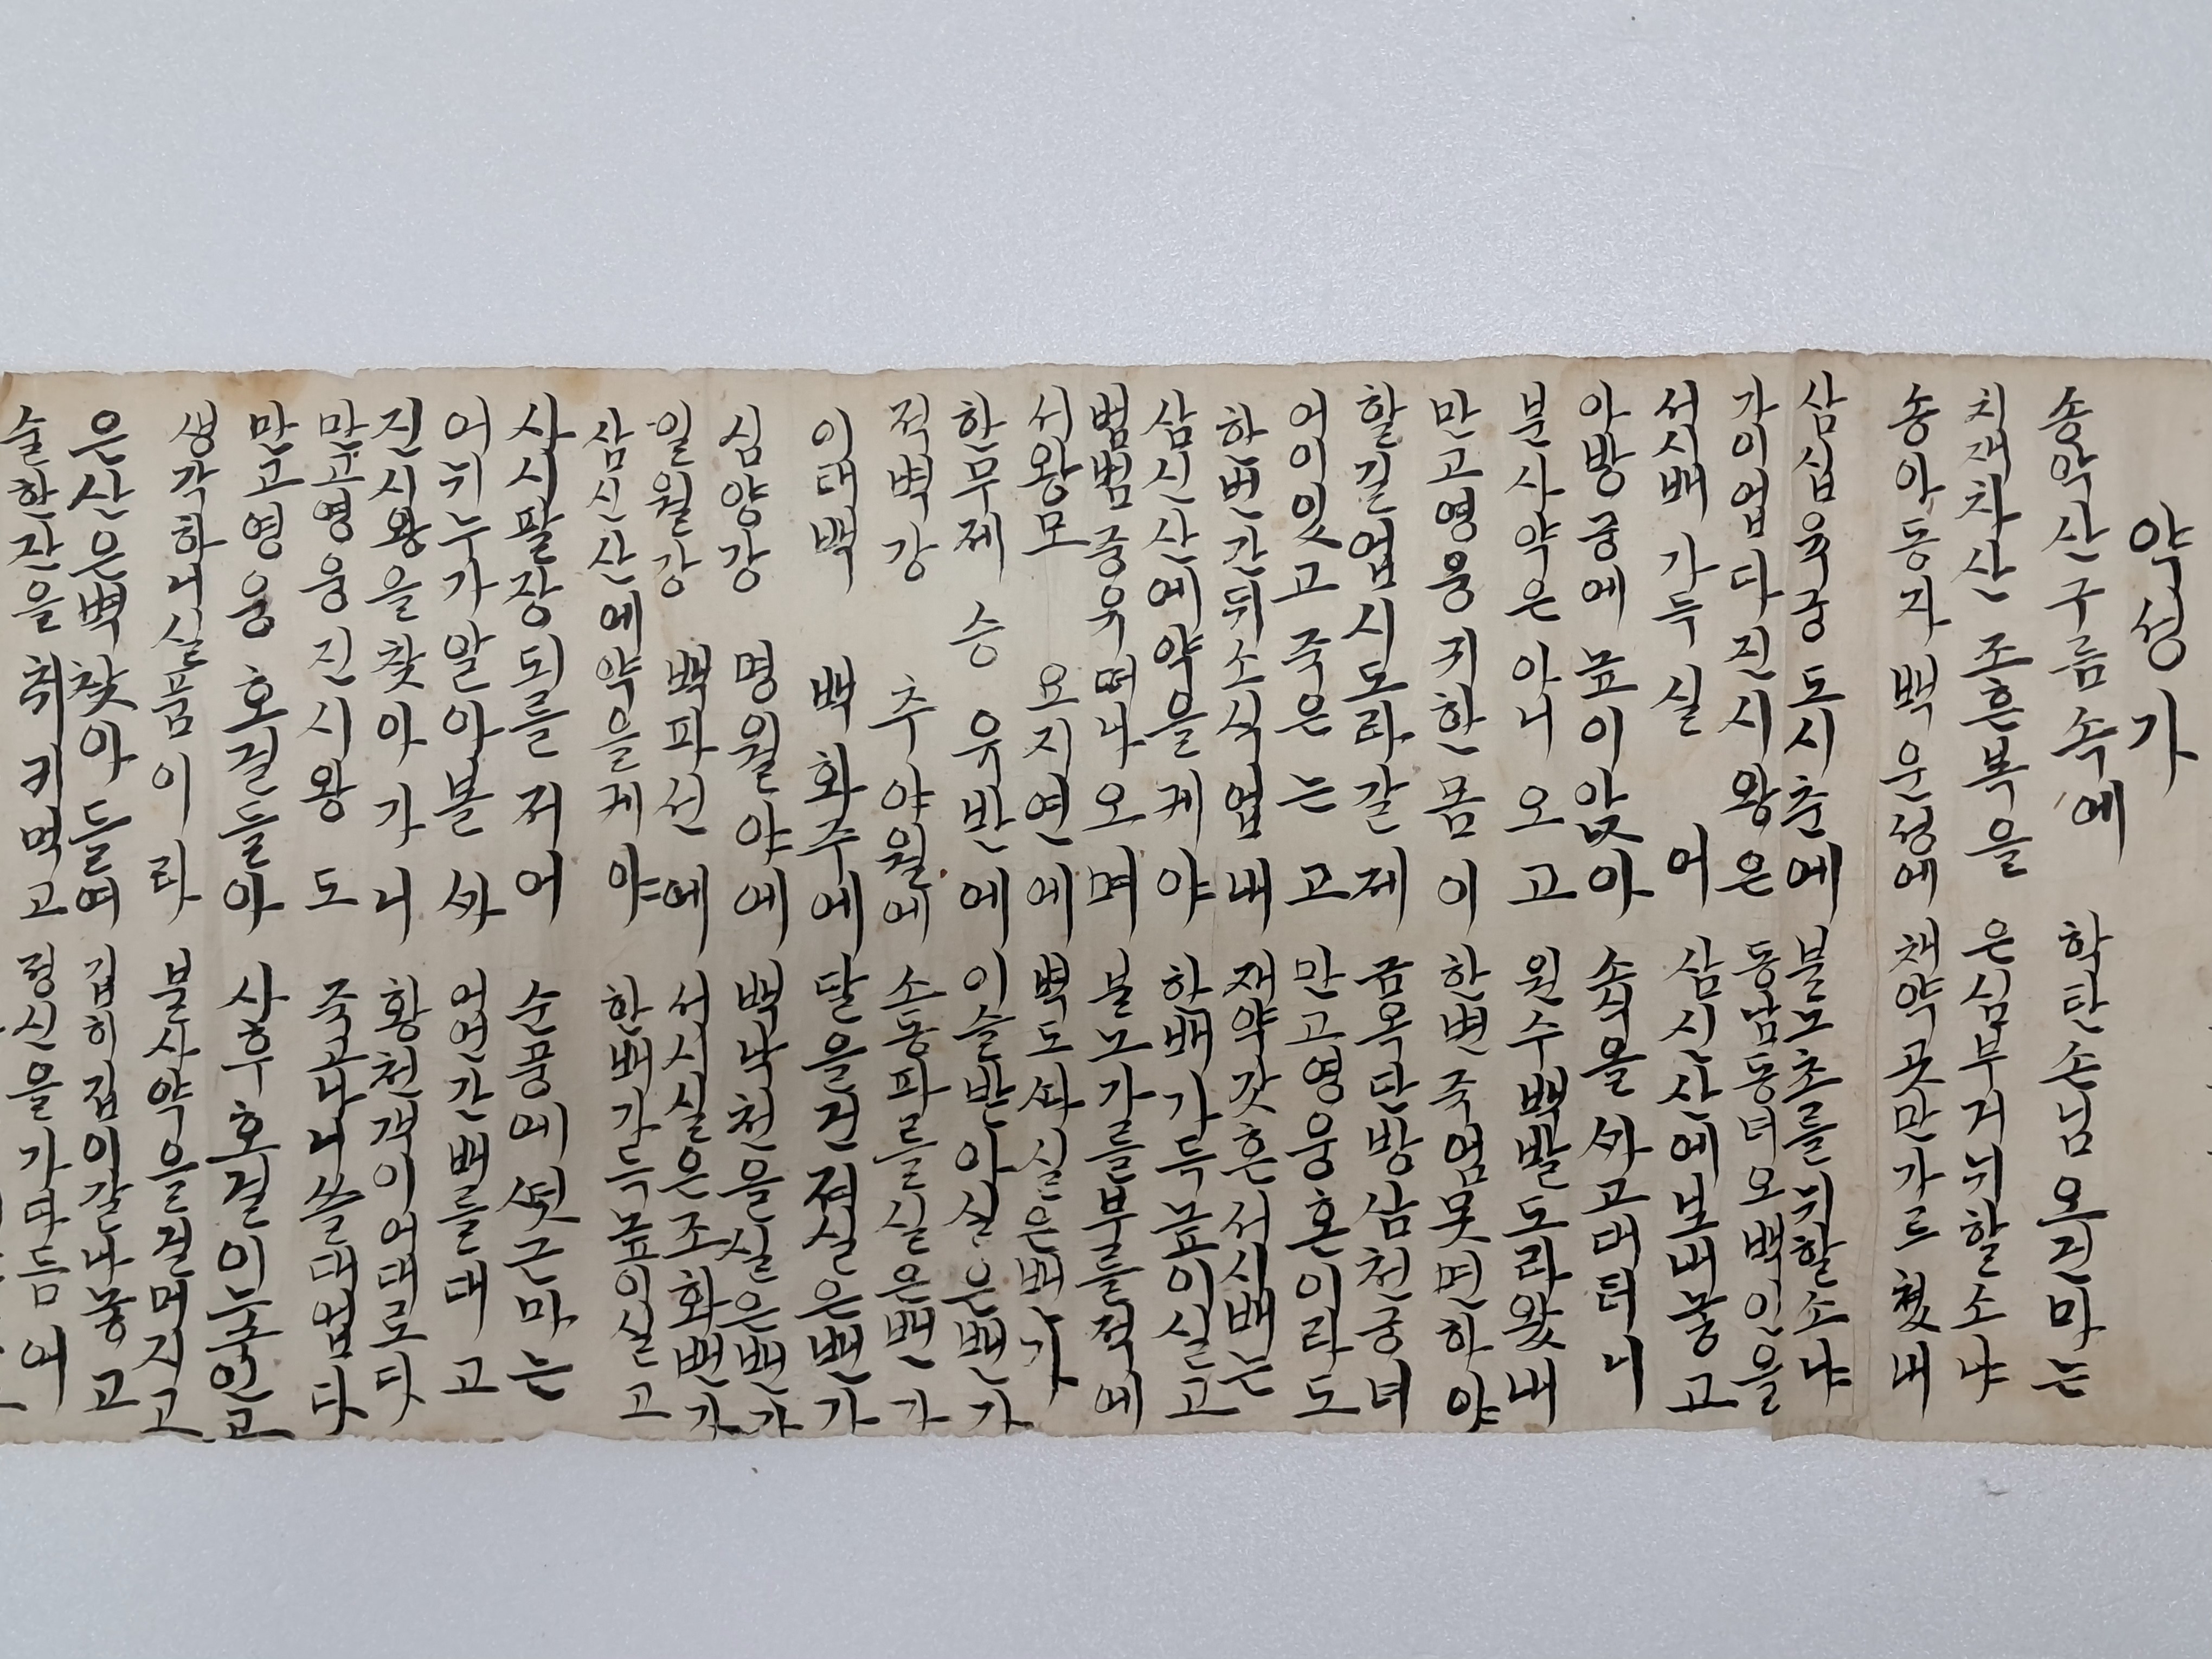 약성가
송악산구름속에 학탄손님오건마는
치재차산조흔복을 은심부거뉘할소냐
송아동자백운성에 채약곳만가르첫내
삼십육궁도시춘에 불노초를뉘할소냐
가이업다진시왕은 동남동녀오백인을
서시배가득실어 삼신산에보내놓고
아방궁에높이앉아 소식을싸고대터니
분사약은아니오고 원수백발도라왔내
만고영웅귀한몸이 한번죽엄못면하야
할길업시도라갈제 금옥단방삼천궁녀
어이잇고죽은는고 만고영웅혼이라도
한번간뒤소식업내 재약갓흔서시배는
삼신산에약을케야 한배가득높이실고
범범중유떠나오며 불노가를부를적에
서왕모요지연에 벽도싸실은배가
한무제승유반에 이슬받아실은밴가
적벽강추야월에 소동파를실은밴가
이태백백화주에 달을건져실은밴가
심양강명월야에 백낙천을실은밴가
일월강백파선에 서시실은조화밴가
삼신산에약을케야 한배가득높이실고
사시팔장되를저어 순풍에떳근마는
어뉘누가알아볼싸 어언간배를대고
진시왕을찾아가니 황천객이어대로다
만고영웅진시왕도 죽고나니쓸대업다
만고영웅호걸들아 사후호걸이누국인고
생각하니실품이라 불사약을걸머지고
은산은벽찾아들여 깁히집이갈나놓고
술한잔을취키먹고 정신을가다듬어